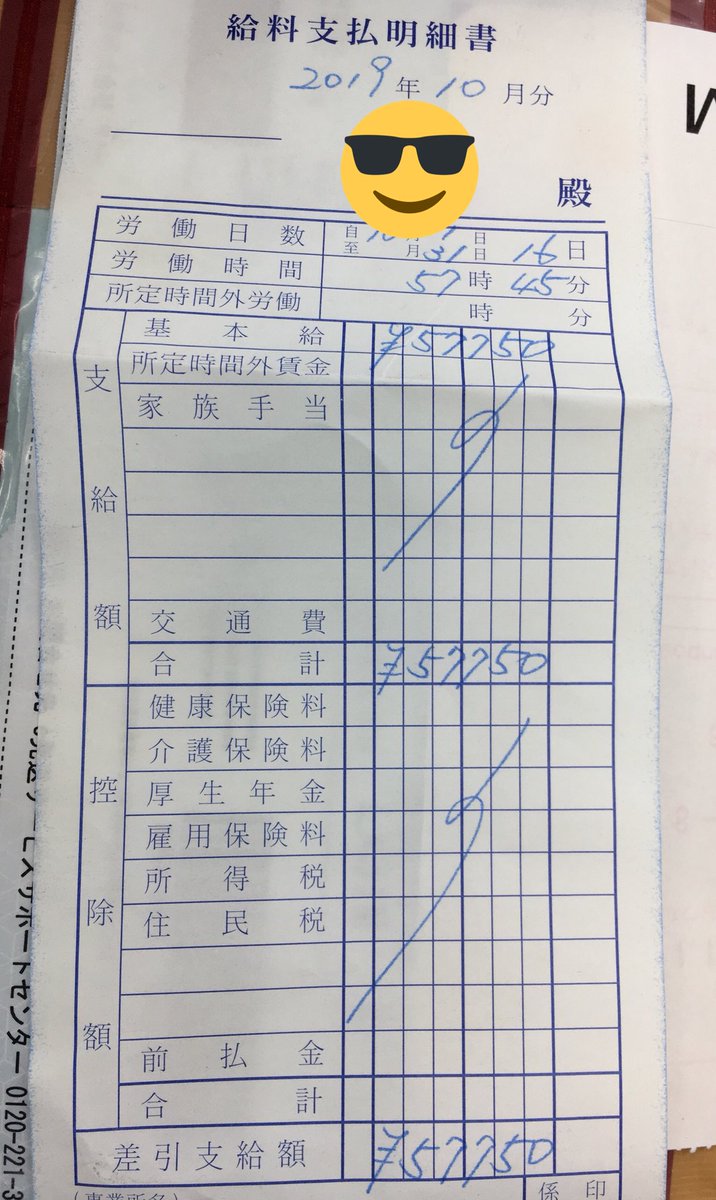 給料支払明細書
2019年10月分
殿
労働日数 自10月1日 至 月31日 16日
労働時間 57時45分
所定時間外労働 時 分
支給額
基本給 ¥57750
所定時間外賃金
家族手当
交通費
合計 ¥57750
控除額
健康保険料
介護保険料
厚生年金
雇用保険料
所得税
住民税
前払金
合計
差引支給額 ¥57750
係印
サポートセンター 0120-221-3
W